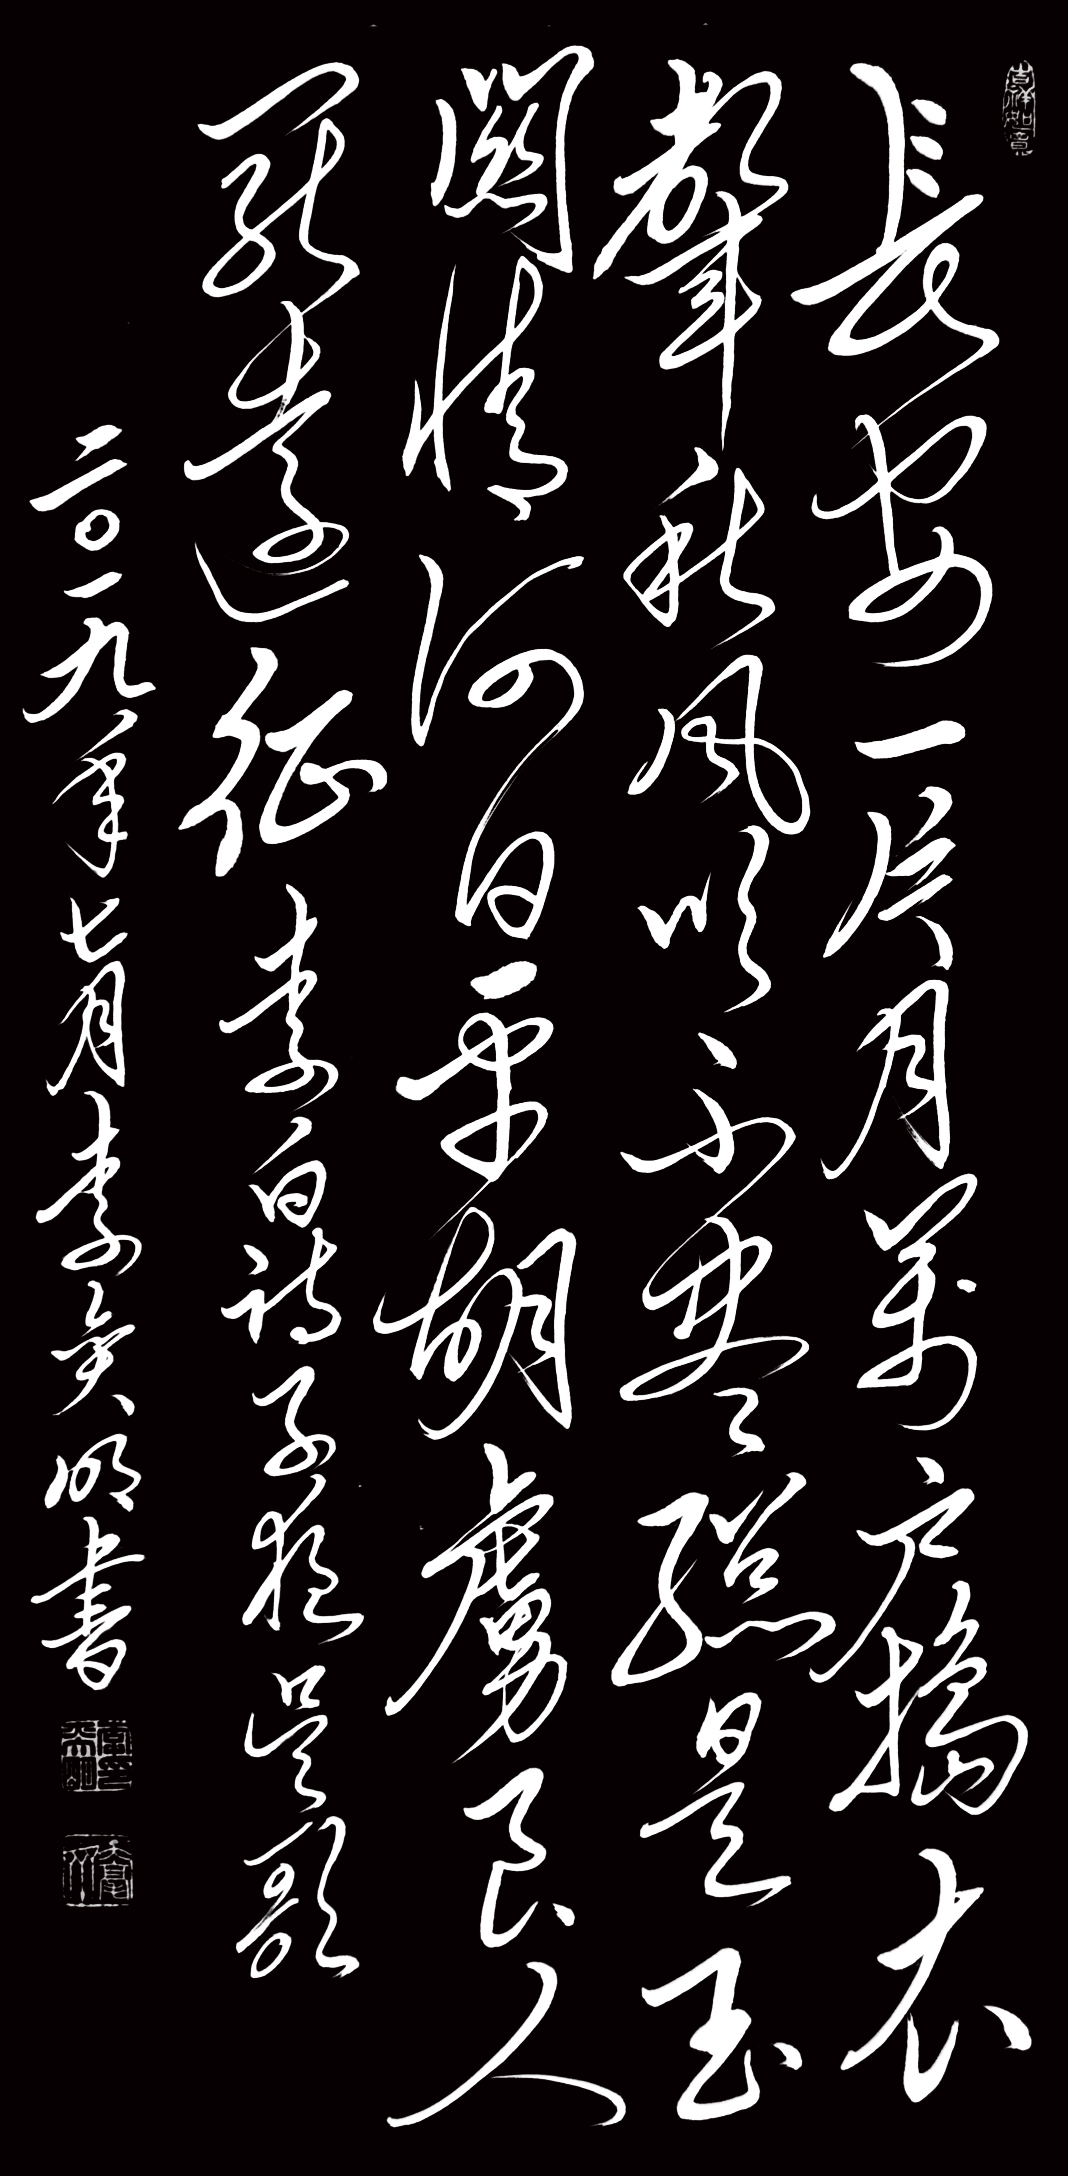 吉祥如意
長安一片月萬户搗衣
聲秋風吹不盡總是玉
關情何日平胡虜良人
罷遠征李白詩子夜吳歌
二〇一九年七月李明書